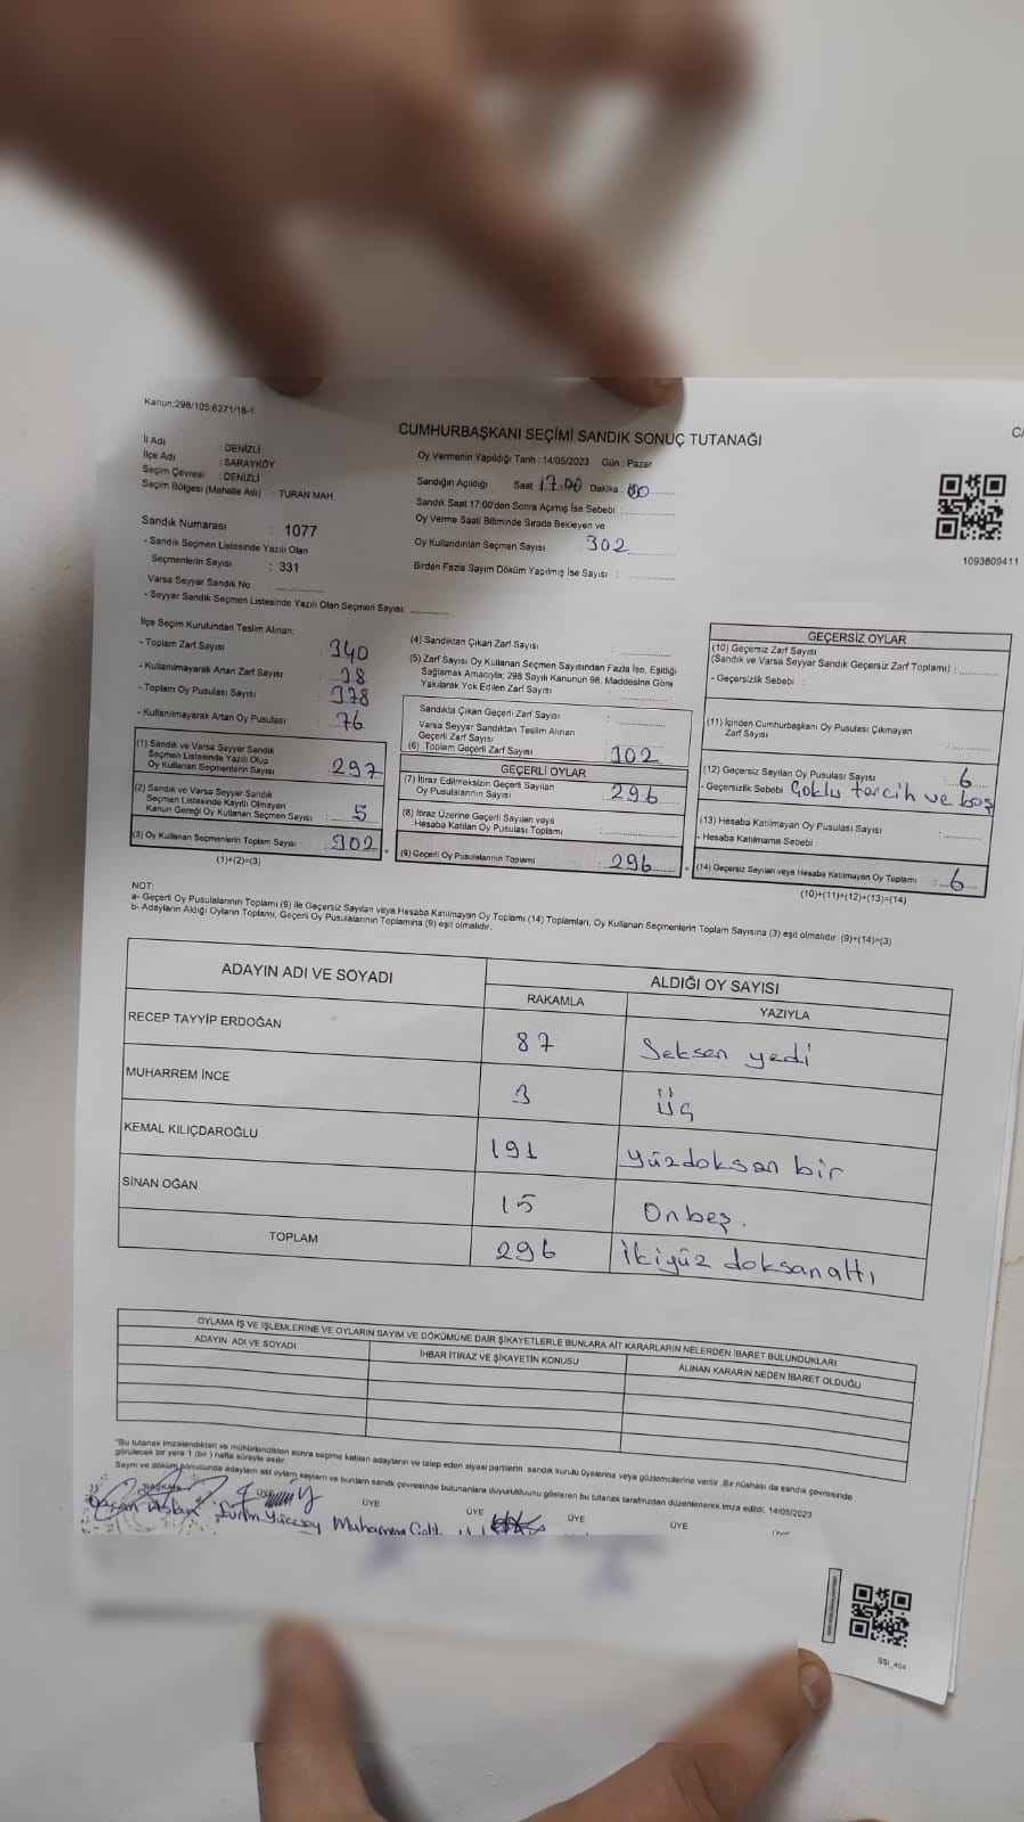 Kanun:298/105;6271/18-1
CUMHURBAŞKANI SEÇİMİ SANDIK SONUÇ TUTANAĞI
İl Adı : DENİZLİ
İlçe Adı : SARAYKÖY
Seçim Çevresi : DENİZLİ
Seçim Bölgesi (Mahalle Adı) : TURAN MAH.
Oy Vermenin Yapıldığı Tarih : 14/05/2023 Gün : Pazar
Sandığın Açıldığı Saat 17:00 Dakika : 00
Sandık Saat 17:00'den Sonra Açılmış İse Sebebi :
Oy Verme Saati Bitiminde Sırada Bekleyen ve
Oy Kullandırılan Seçmen Sayısı 302
Birden Fazla Sayım Döküm Yapılmış İse Sayısı :
Sandık Numarası : 1077
- Sandık Seçmen Listesinde Yazılı Olan
Seçmenlerin Sayısı : 331
Varsa Seyyar Sandık No
- Seyyar Sandık Seçmen Listesinde Yazılı Olan Seçmen Sayısı:
1093809411
İlçe Seçim Kurulundan Teslim Alınan:
- Toplam Zarf Sayısı 340
- Kullanılmayarak Artan Zarf Sayısı 38
- Toplam Oy Pusulası Sayısı 378
- Kullanılmayarak Artan Oy Pusulası 76
(1) Sandık ve Varsa Seyyar Sandık
Seçmen Listesinde Yazılı Olup
Oy Kullanan Seçmenlerin Sayısı : 297
(2) Sandık ve Varsa Seyyar Sandık
Seçmen Listesinde Kayıtlı Olmayan
Kanun Gereği Oy Kullanan Seçmen Sayısı : 5
(3) Oy Kullanan Seçmenlerin Toplam Sayısı : 302
(1)+(2)=(3)
(4) Sandıktan Çıkan Zarf Sayısı :
(5) Zarf Sayısı Oy Kullanan Seçmen Sayısından Fazla İse, Eşitliği
Sağlamak Amacıyla; 298 Sayılı Kanunun 98. Maddesine Göre
Yakılarak Yok Edilen Zarf Sayısı :
Sandıkta Çıkan Geçerli Zarf Sayısı :
Varsa Seyyar Sandıktan Teslim Alınan
Geçerli Zarf Sayısı :
(6) Toplam Geçerli Zarf Sayısı 302
GEÇERLİ OYLAR
(7) İtiraz Edilmeksizin Geçerli Sayılan
Oy Pusulalarının Sayısı : 296
(8) İtiraz Üzerine Geçerli Sayılan veya
Hesaba Katılan Oy Pusulası Toplamı :
(9) Geçerli Oy Pusulalarının Toplamı : 296
GEÇERSİZ OYLAR
(10) Geçersiz Zarf Sayısı
(Sandık ve Varsa Seyyar Sandık Geçersiz Zarf Toplamı) :
- Geçersizlik Sebebi :
(11) İçinden Cumhurbaşkanı Oy Pusulası Çıkmayan
Zarf Sayısı :
(12) Geçersiz Sayılan Oy Pusulası Sayısı : 6
- Geçersizlik Sebebi Çoklu tercih ve boş
(13) Hesaba Katılmayan Oy Pusulası Sayısı :
- Hesaba Katılmama Sebebi :
(14) Geçersiz Sayılan veya Hesaba Katılmayan Oy Toplamı : 6
(10)+(11)+(12)+(13)=(14)
NOT:
a- Geçerli Oy Pusulalarının Toplamı (9) ile Geçersiz Sayılan veya Hesaba Katılmayan Oy Toplamı (14) Toplamları, Oy Kullanan Seçmenlerin Toplam Sayısına (3) eşit olmalıdır. (9)+(14)=(3)
b- Adayların Aldığı Oyların Toplamı, Geçerli Oy Pusulalarının Toplamına (9) eşit olmalıdır.
ADAYIN ADI VE SOYADI
ALDIĞI OY SAYISI
RAKAMLA YAZIYLA
RECEP TAYYİP ERDOĞAN 87 Seksen yedi
MUHARREM İNCE 3 Üç
KEMAL KILIÇDAROĞLU 191 Yüzdoksan bir
SİNAN OĞAN 15 Onbeş.
TOPLAM 296 İkiyüz doksanaltı
OYLAMA İŞ VE İŞLEMLERİNE VE OYLARIN SAYIM VE DÖKÜMÜNE DAİR ŞİKAYETLERLE BUNLARA AİT KARARLARIN NELERDEN İBARET BULUNDUKLARI
ADAYIN ADI VE SOYADI İHBAR İTİRAZ VE ŞİKAYETİN KONUSU ALINAN KARARIN NEDEN İBARET OLDUĞU
"Bu tutanak imzalandıktan ve mühürlendikten sonra seçime katılan adayların ve talep eden siyasi partilerin sandık kurulu üyelerine veya gözlemcilerine verilir. Bir nüshası da sandık çevresinde
görülecek bir yere 1 (bir) hafta süreyle asılır.
Sayım ve döküm sonucunda adayların
ÜYE ÜYE ÜYE ÜYE